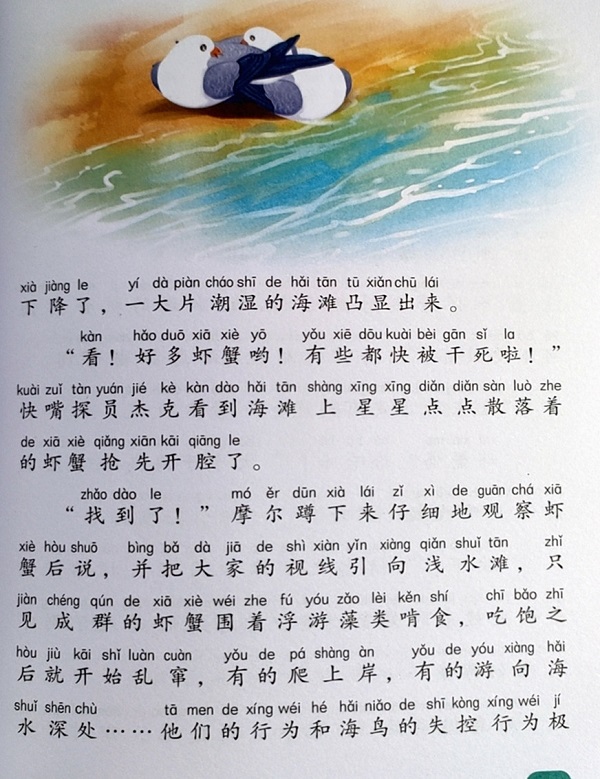 xià jiàng le yí dà piàn cháo shī de hǎi tān tū xiǎn chū lái
下降了，一大片潮湿的海滩凸显出来。
kàn hǎo duō xiā xiè yō yǒu xiē dōu kuài bèi gān sǐ la
“看！好多虾蟹哟！有些都快被干死啦！”
kuài zuǐ tàn yuán jié kè kàn dào hǎi tān shàng xīng xīng diǎn diǎn sàn luò zhe
快嘴探员杰克看到海滩上星星点点散落着
de xiā xiè qiǎng xiān kāi qiāng le
的虾蟹抢先开腔了。
zhǎo dào le mó ěr dūn xià lái zǐ xì de guān chá xiā
“找到了！”摩尔蹲下来仔细地观察虾
xiè hòu shuō bìng bǎ dà jiā de shì xiàn yǐn xiàng qiǎn shuǐ tān zhǐ
蟹后说，并把大家的视线引向浅水滩，只
jiàn chéng qún de xiā xiè wéi zhe fú yóu zǎo lèi kěn shí chī bǎo zhī
见成群的虾蟹围着浮游藻类啃食，吃饱之
hòu jiù kāi shǐ luàn cuàn yǒu de pá shàng àn yǒu de yóu xiàng hǎi
后就开始乱窜，有的爬上岸，有的游向海
shuǐ shēn chù tā men de xíng wéi hé hǎi niǎo de shī kòng xíng wéi jí
水深处……他们的行为和海鸟的失控行为极